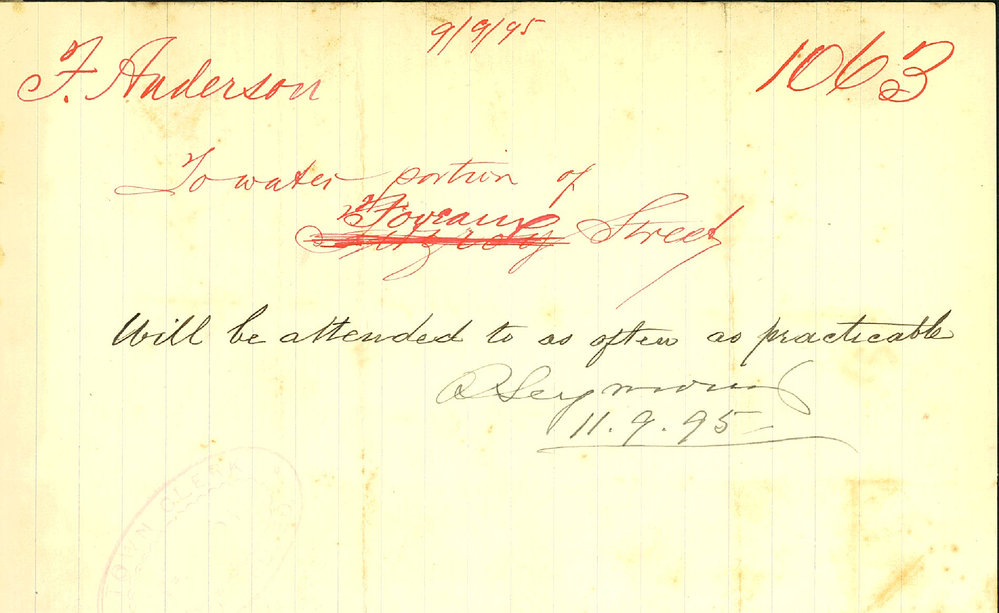 9/9/95
F. Anderson
1063
To water portion of
Foveaux
Street
Will be attended to as often as practicable
R Seymour
11.9.95
TOWN CLERK